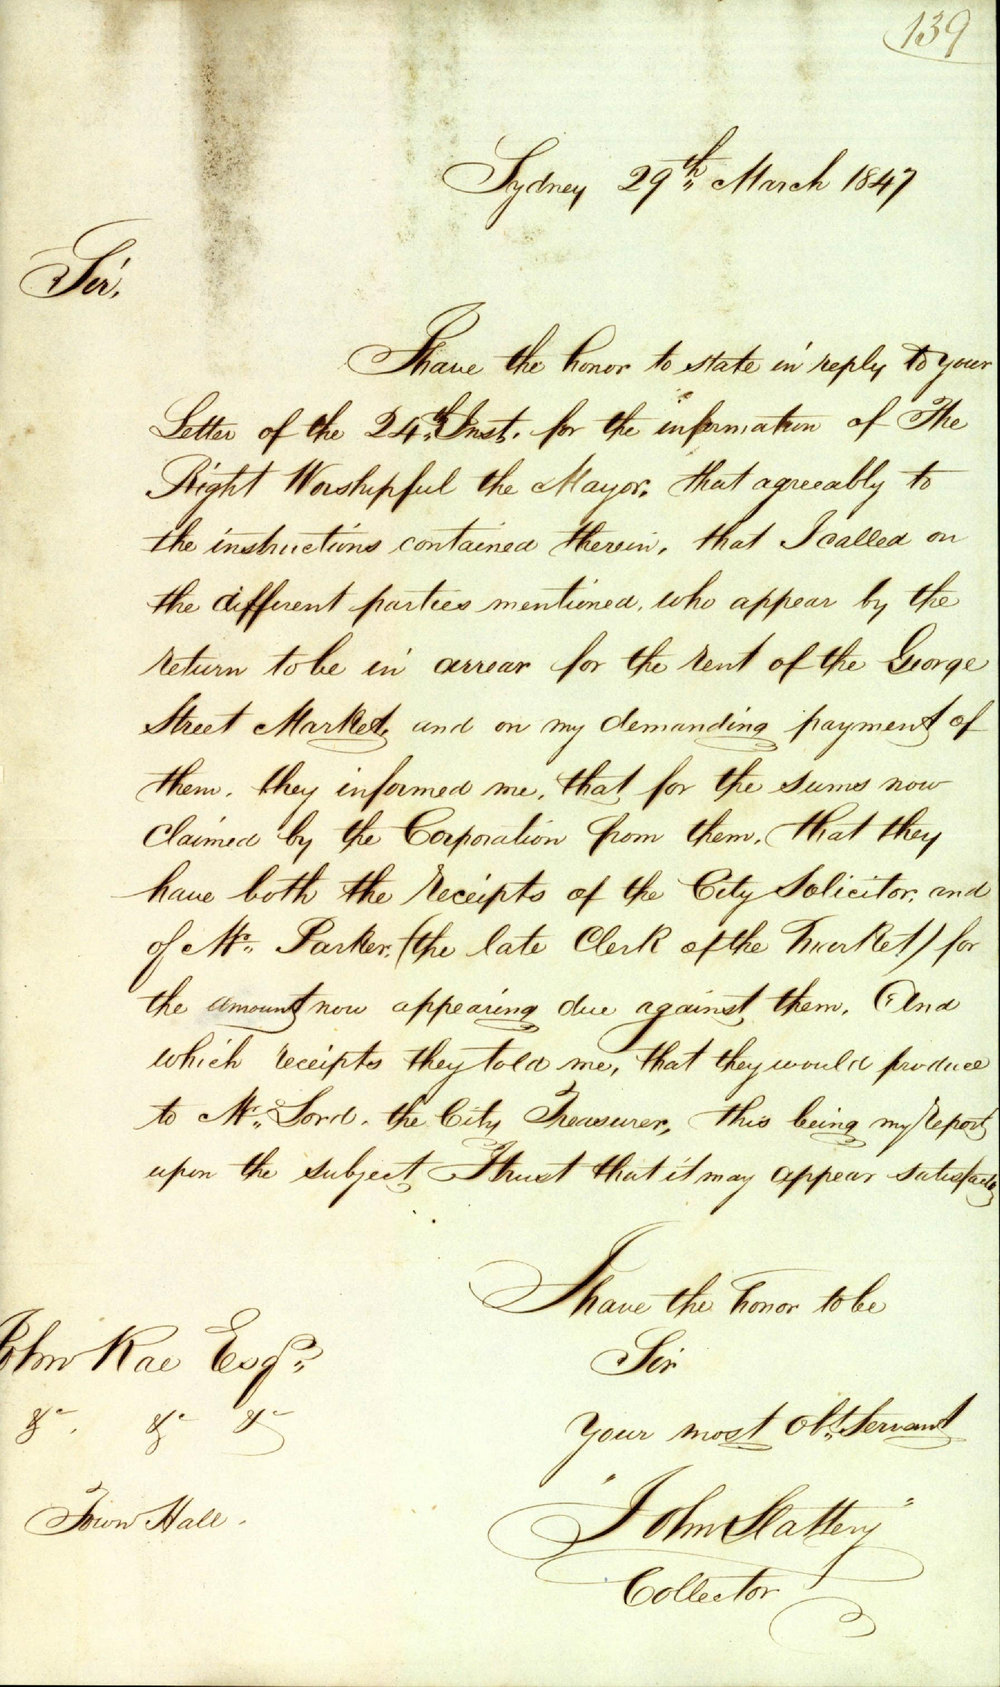 139
Sydney 29th March 1847
Sir,
I have the honor to state in reply to your
Letter of the 24th Inst. for the information of The
Right Worshipful the Mayor, that agreeably to
the instructions contained therein, that I called on
the different parties mentioned, who appear by the
return to be in arrear for the rent of the George
Street Market, and on my demanding payment of
them, they informed me, that for the sums now
claimed by the Corporation from them, that they
have both the receipts of the City Solicitor, and
of Mr. Parker, (the late Clerk of the Market) for
the amount now appearing due against them, And
which receipts they told me, that they would produce
to Mr. Lord, the City Treasurer, this being my report
upon the subject I trust that it may appear satisfacty
I have the honor to be
Sir
Your most Obt. Servant
"John Slattery"
Collector
John Rae Esqr.
&c. &c &c
Town Hall.